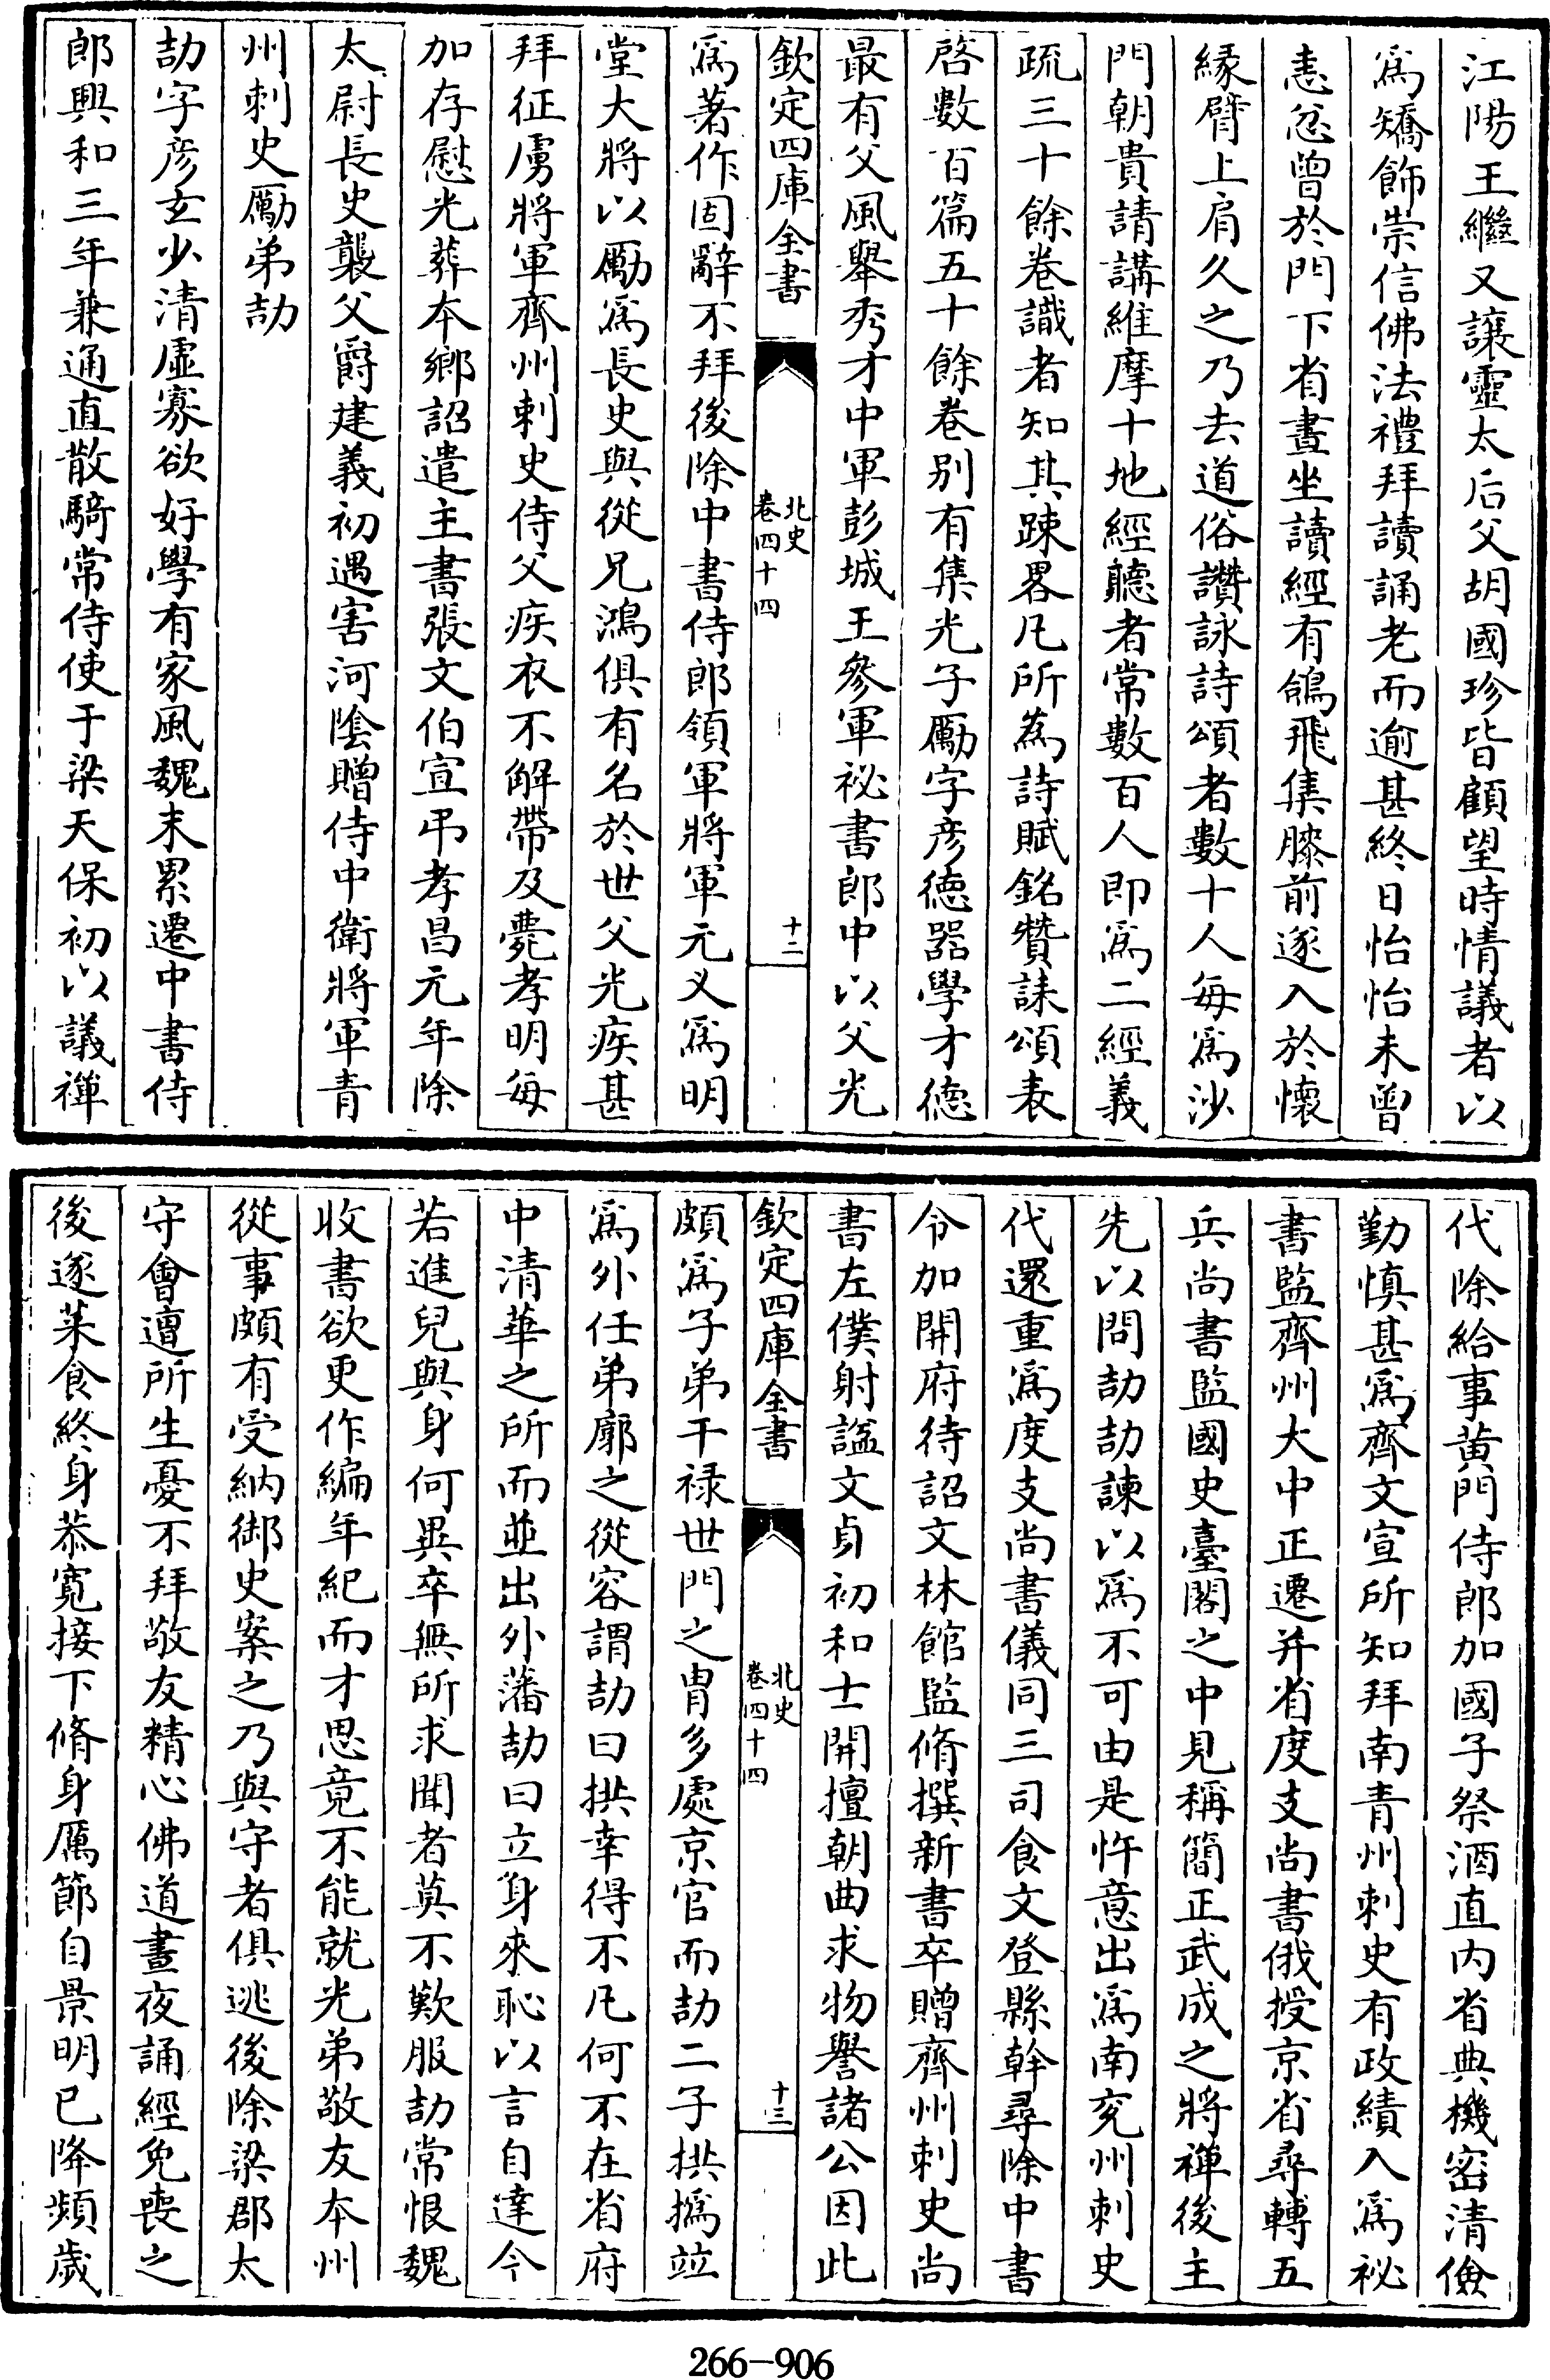 江陽王繼又讓靈太后父胡國珍皆顧望時情議者以
爲矯飾崇信佛法禮拜讀誦老而逾甚終日怡怡未曾
恚忿曾於門下省晝坐讀經有鴿飛集膝前遂入於懷
緣臂上肩久之乃去道俗讚詠詩頌者數十人每爲沙
門朝貴請講維摩十地經聽者常數百人即爲二經義
疏三十餘卷識者知其踈畧凡所為詩賦銘贊誄頌表
啓數百篇五十餘卷别有集光子勵字彥德器學才德
最有父風舉秀才中軍彭城王參軍祕書郎中以父光
欽定四庫全書
北史
卷四十四
十二
爲著作固辭不拜後除中書侍郎領軍將軍元乂爲明
堂大將以勵爲長史與從兄鴻俱有名於世父光疾甚
拜征虜將軍齊州刺史侍父疾衣不解帶及薨孝明每
加存慰光葬本鄉詔遣主書張文伯宣弔孝昌元年除
太尉長史襲父爵建義初遇害河隂贈侍中衛將軍青
州刺史勵弟劼
劼字彥玄少清虛寡欲好學有家風魏末累遷中書侍
郎興和三年兼通直散騎常侍使于梁天保初以議禪
代除給事黄門侍郎加國子祭酒直内省典機密清儉
勤慎甚爲齊文宣所知拜南青州刺史有政績入爲祕
書監齊州大中正遷并省度支尚書俄授京省尋轉五
兵尚書監國史臺閣之中見稱簡正武成之將禪後主
先以問劼劼諫以爲不可由是忤意出爲南兖州刺史
代還重爲度支尚書儀同三司食文登縣幹尋除中書
令加開府待詔文林館監脩撰新書卒贈齊州刺史尚
書左僕射諡文貞初和士開擅朝曲求物譽諸公因此
欽定四庫全書
北史
卷四十四
十三
頗爲子弟干禄世門之胄多處京官而劼二子拱撝竝
爲外任弟廓之從容謂劼曰拱幸得不凡何不在省府
中清華之所而並出外藩劼曰立身來恥以言自達今
若進兒與身何異卒無所求聞者莫不歎服劼常恨魏
收書欲更作編年紀而才思竟不能就光弟敬友本州
從事頗有受納御史案之乃與守者俱逃後除梁郡太
守會遭所生憂不拜敬友精心佛道晝夜誦經免喪之
後遂菜食終身恭寬接下脩身厲節自景明已降頻歲
266-906